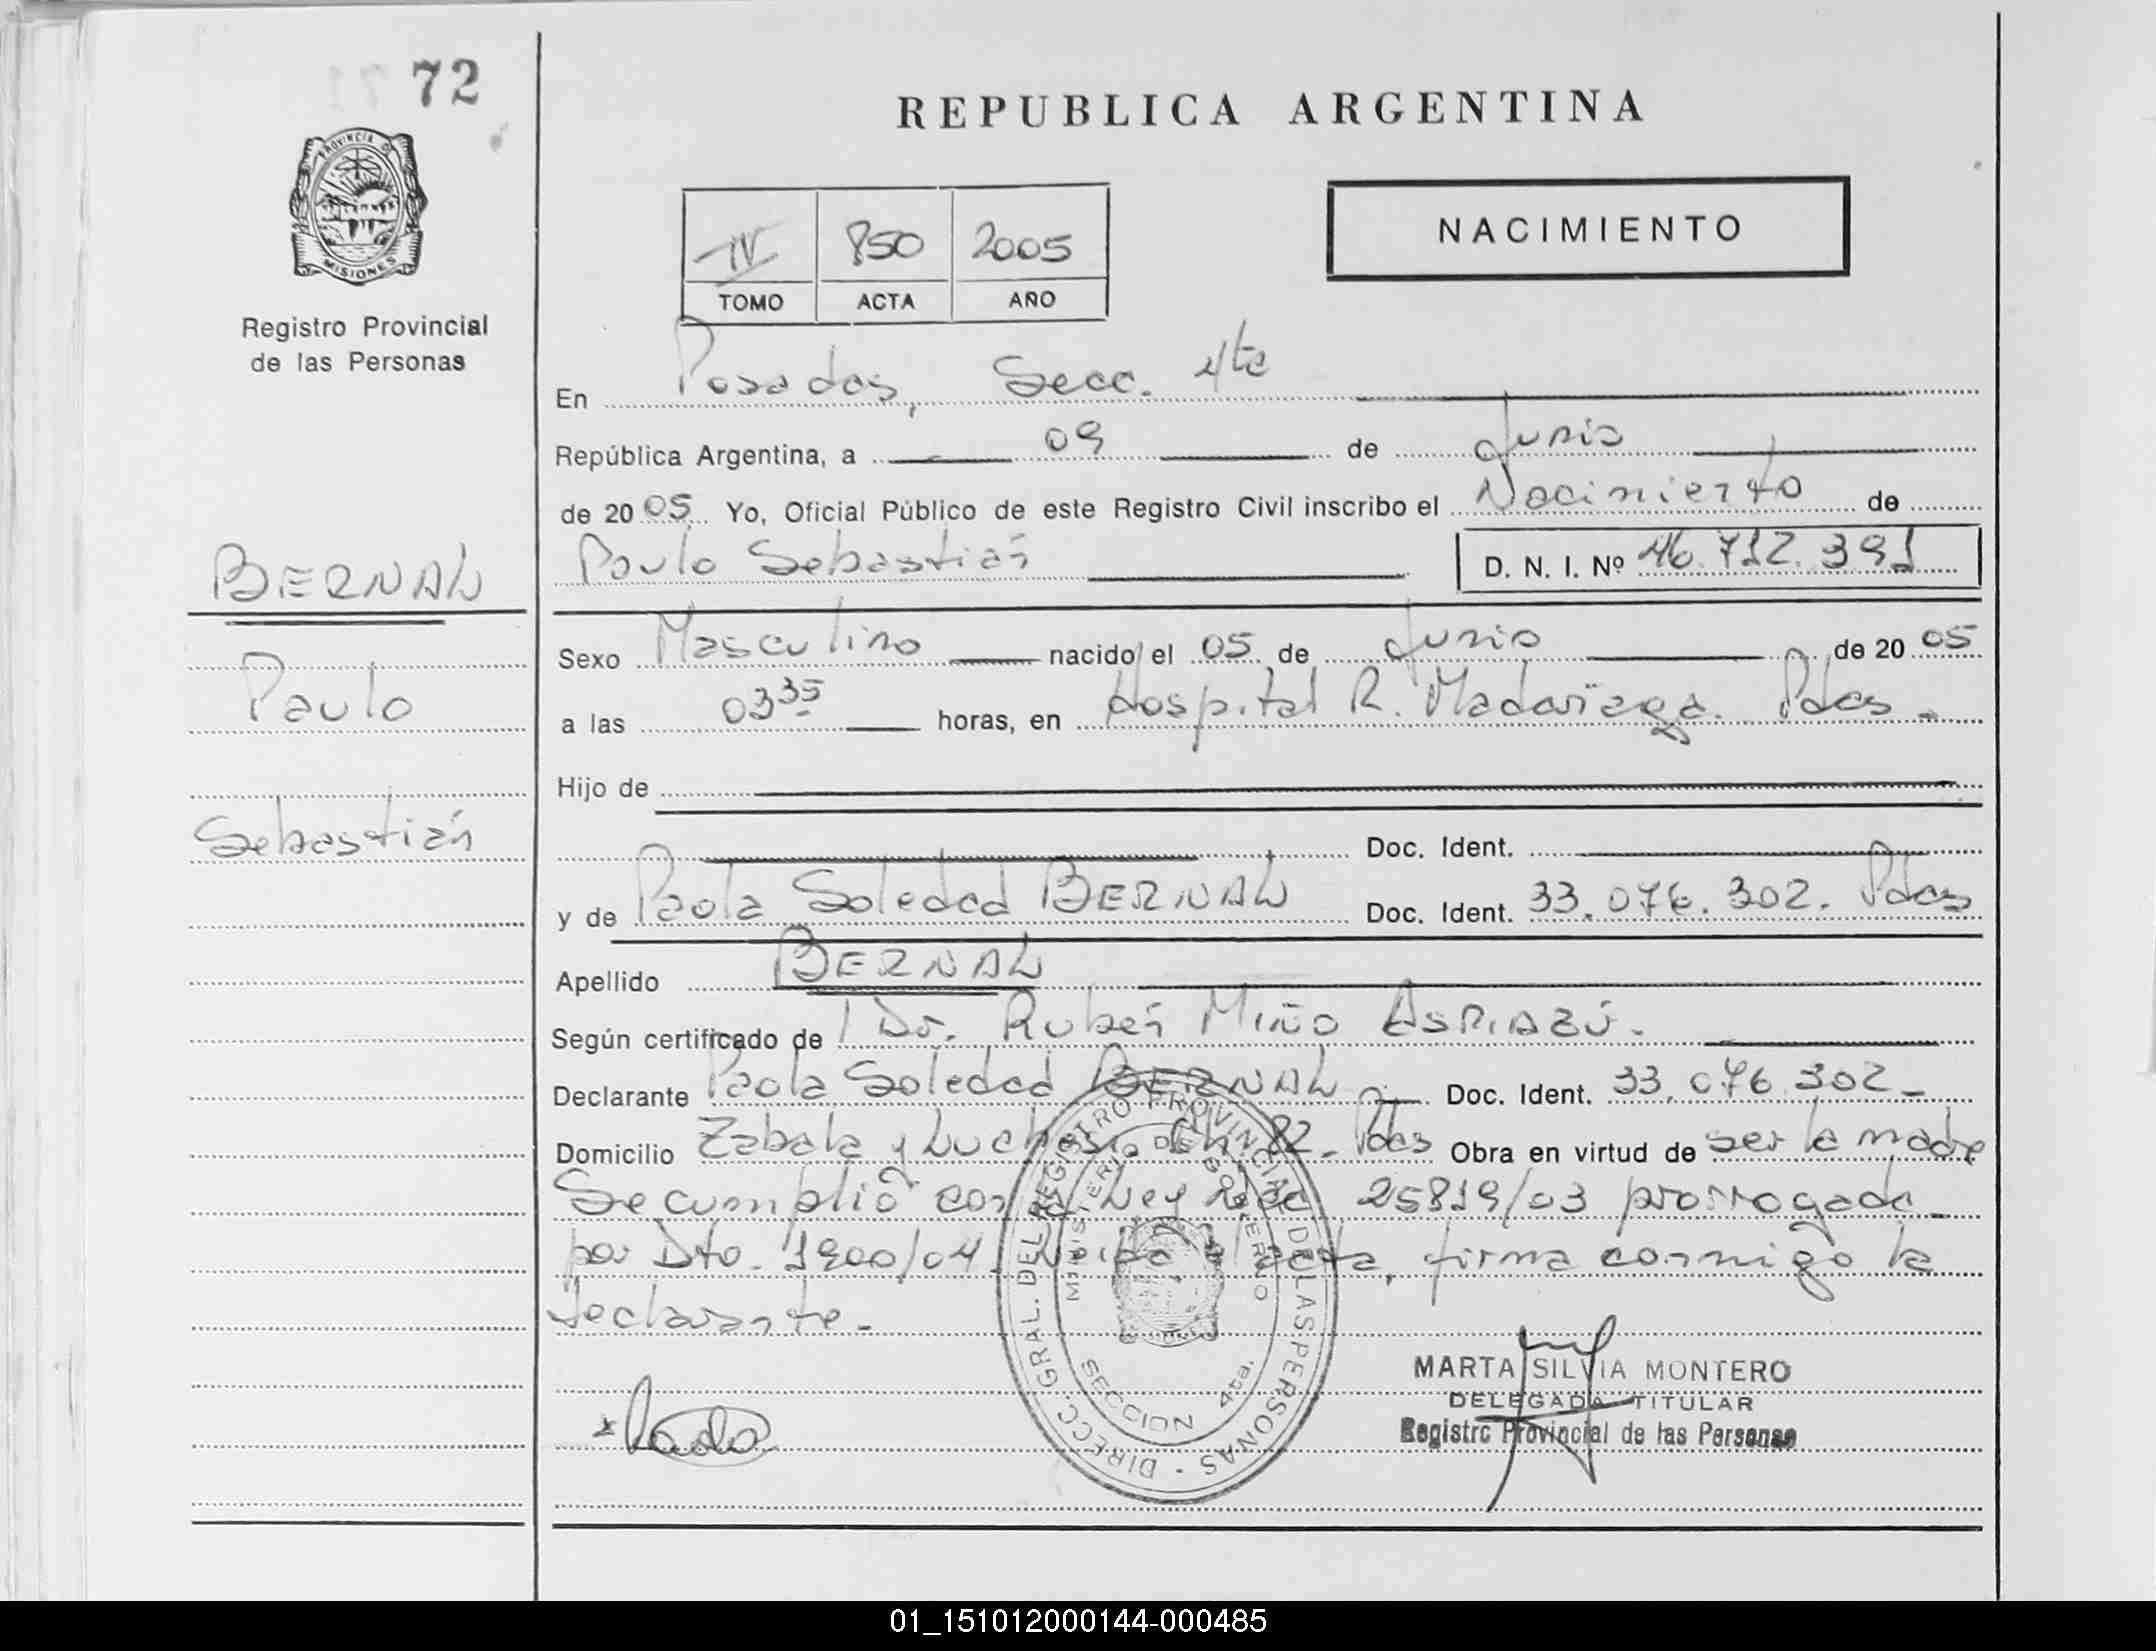 72
PROVINCIA D
MISIONES
Registro Provincial
de las Personas
BERNAL
Paulo
Sebastián
REPUBLICA ARGENTINA
NACIMIENTO
IV 850 2005
TOMO ACTA AÑO
En Posadas, Secc. 4ta
República Argentina, a 09 de Junio
de 2005. Yo, Oficial Público de este Registro Civil inscribo el Nacimiento de
Paulo Sebastián D. N. I. Nº 46.712.391
Sexo Masculino nacido el 05 de Junio de 2005
a las 03 35 horas, en Hospital R. Madariaga. Pdas -
Hijo de
Doc. Ident.
y de Paola Soledad BERNAL Doc. Ident. 33.076.302. Pdas
Apellido BERNAL
Según certificado de Dr. Rubén Miño ASPIAZÚ.
Declarante Paola Soledad BERNAL Doc. Ident. 33.076.302 -
Domicilio Zabala y Luchesi Ch. 82. Pdas Obra en virtud de ser la madre
Se cumplió con Ley 25819/03 prorrogada
por Dto. 1900/04. acta, firma conmigo la
declarante.-
Paola
MARTA SILVIA MONTERO
DELEGADA TITULAR
Registro Provincial de las Personas
DIRECC. GRAL. DEL REGISTRO PROVINCIAL DE LAS PERSONAS -
MINISTERIO DE GOBIERNO
SECCION 4ta.
01_151012000144-000485